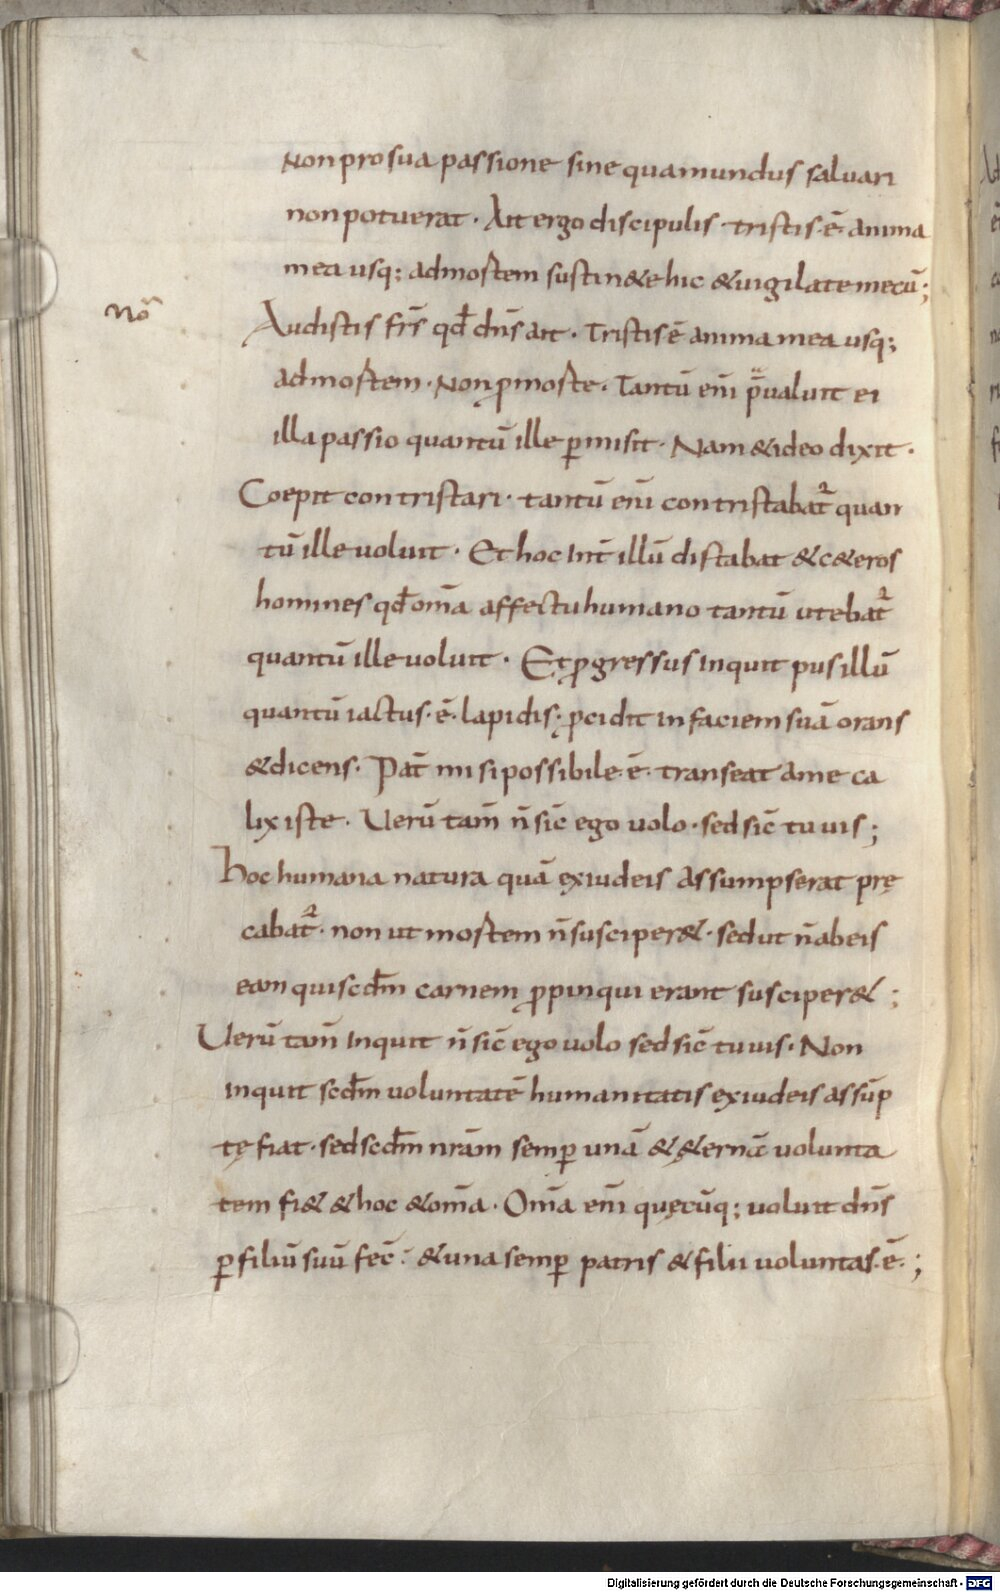 Non pro sua passione sine qua mundus saluari
non potuerat · Ait ergo discipulis · tristis · ē · anima
mea usq; ad mortem sustin&e hic & uigilate mecū ;
Nō
Audistis frs̄ qđ dn̄s ait · Tristis ē anima mea usq;
ad mortem · Non ꝓ morte · Tantū eni̅ p̄ualuit ei
illa passio quantū ille ꝑmisit · Nam & ideo dixit ·
Coepit contristari · tantū eni̅ contristabat᷑ quan
tū ille uoluit · Et hoc int̄ illū distabat & c&eros
homines qđ om̄a affectu humano tantū utebat᷑
quantū ille uoluit · Et ꝓgressus inquit pusillū
quantū iactus · ē · lapidis · ꝓcidit in faciem suā orans
& dicens · Pat̄ mi si possibile · ē · transeat a me ca
lix iste · Uerū tam̄ n̄ sic̄ ego uolo · sed sic̄ tu uis ;
Hoc humana natura quā ex iudeis assumpserat prę
cabat᷑ · non ut mortem n̄ susciper& · sed ut n̄ ab eis
eam qui scđm carnem ꝓpinqui erant susciper& ;
Uerū tam̄ inquit n̄ sic̄ ego uolo sed sic̄ tu uis · Non
inquit scđm uoluntatē humanitatis ex iudeis assūp
tę fiat · sed scđm nr̄am semꝑ unā & ę&ernā uolunta
tem fi& & hoc & om̄a · Om̄a eni̅ quęcūq; uoluit dn̄s
ꝑ filiū suū fec̄ · & una semꝑ patris & filii uoluntas · ē · ;
Digitalisierung gefördert durch die Deutsche Forschungsgemeinschaft - DFG